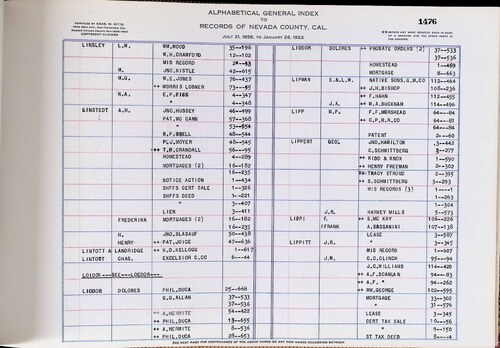 ALPHABETICAL GENERAL INDEX
TO
RECORDS OF NEVADA COUNTY, CAL.
JULY 21, 1856, TO JANUARY 26, 1922
COPYRIGHT CLAIMED
1476
LINSLEY L.W. WM. WOOD 35--196
W.H. CRAWFORD 12--102
MIS RECORD
W. JNO. KISTLE 42--615
W.G. W.E. JONES 76--437
++ MORRIS LOBNER 73--95
W.A. E.F. FISS 4--347
" 4--348
LINSTEDT A.H. JNO. HUSSEY 46--499
PAT. MC CANN 57--368
" 53--654
B.F. SNELL 48--544
PLJ. MOYER 48--545
++ T.W. CRANDALL 56---95
HOMESTEAD 4--289
MORTGAGES (2) 16--182
16--235
NOTICE ACTION 1--434
SHFFS CERT SALE 1--326
SHFFS DEED 1--221
" 3--407
LIEN 3--411
FREDERIKA MORTGAGES (2) 16--182
16--235
H. JNO. BLASAUF 50--438
HENRY ++ PAT. JOICE 47--636
LINTOTT & LANDRIDGE ++ W.D. KELLOGG 1--617
LINTOTT CHAS. EXCELSIOR C.CO 6---44
LOIDOR---SEE---LOEDOR---
LIODON DOLORES PHIL. DUCA 25--668
G.G. ALLAN 37--533
37--536
++ A. HERMITE 54--422
++ PHIL. DUCA 13--655
++ A. HERMITE 8--536
++ PHIL. DUCA 28--653
LIODOR DOLORES ++ PROBATE ORDERS (2) 37--533
37--536
HOMESTEAD 1--469
MORTGAGE 8--663
LIPMAN E.& L.W. NATIVE SONS, G.W. CO 112--464
++ J.H. BISHOP 108--236
++ F. HAHN 112--455
J.A. ++ W.A. BUCKNAM 114--496
LIPP W.P. F.F. MORSHEAD 64---84
++ C.P.R.R. CO 64---84
64---84
PATENT 2---60
LIPPERT GEO. JNO. HAMILTON 3--442
C. SCHMITTBERG 3--277
++ KIDD & KNOX 1--590
++ HENRY FREEMAN 2--302
++ TRACY STROUD 2--395
++ S. SCHMITTBERG 3--293
MIS RECORDS (3) 1----1
1--263
1--304
J.R. HARVEY MILLS 5--573
LIPPI F. ++ S. MC KAY 106--026
FFRANK A. SASSANINI 107--138
LEASE 3--507
LIPPITT J.R. " 3--345
MIS RECORD 1--107
J.W. C.C. CLINCH 95---94
J.G. WILLIAMS 114--420
++ A.F. SCANLAN 94---83
++ A.F. " 94--262
++ WM. GEORGE 102--595
MORTGAGE 33--302
" 31--576
LEASE 3--345
CERT TAX SALE 10---56
" 9--150
ST TAX DEED 8----4